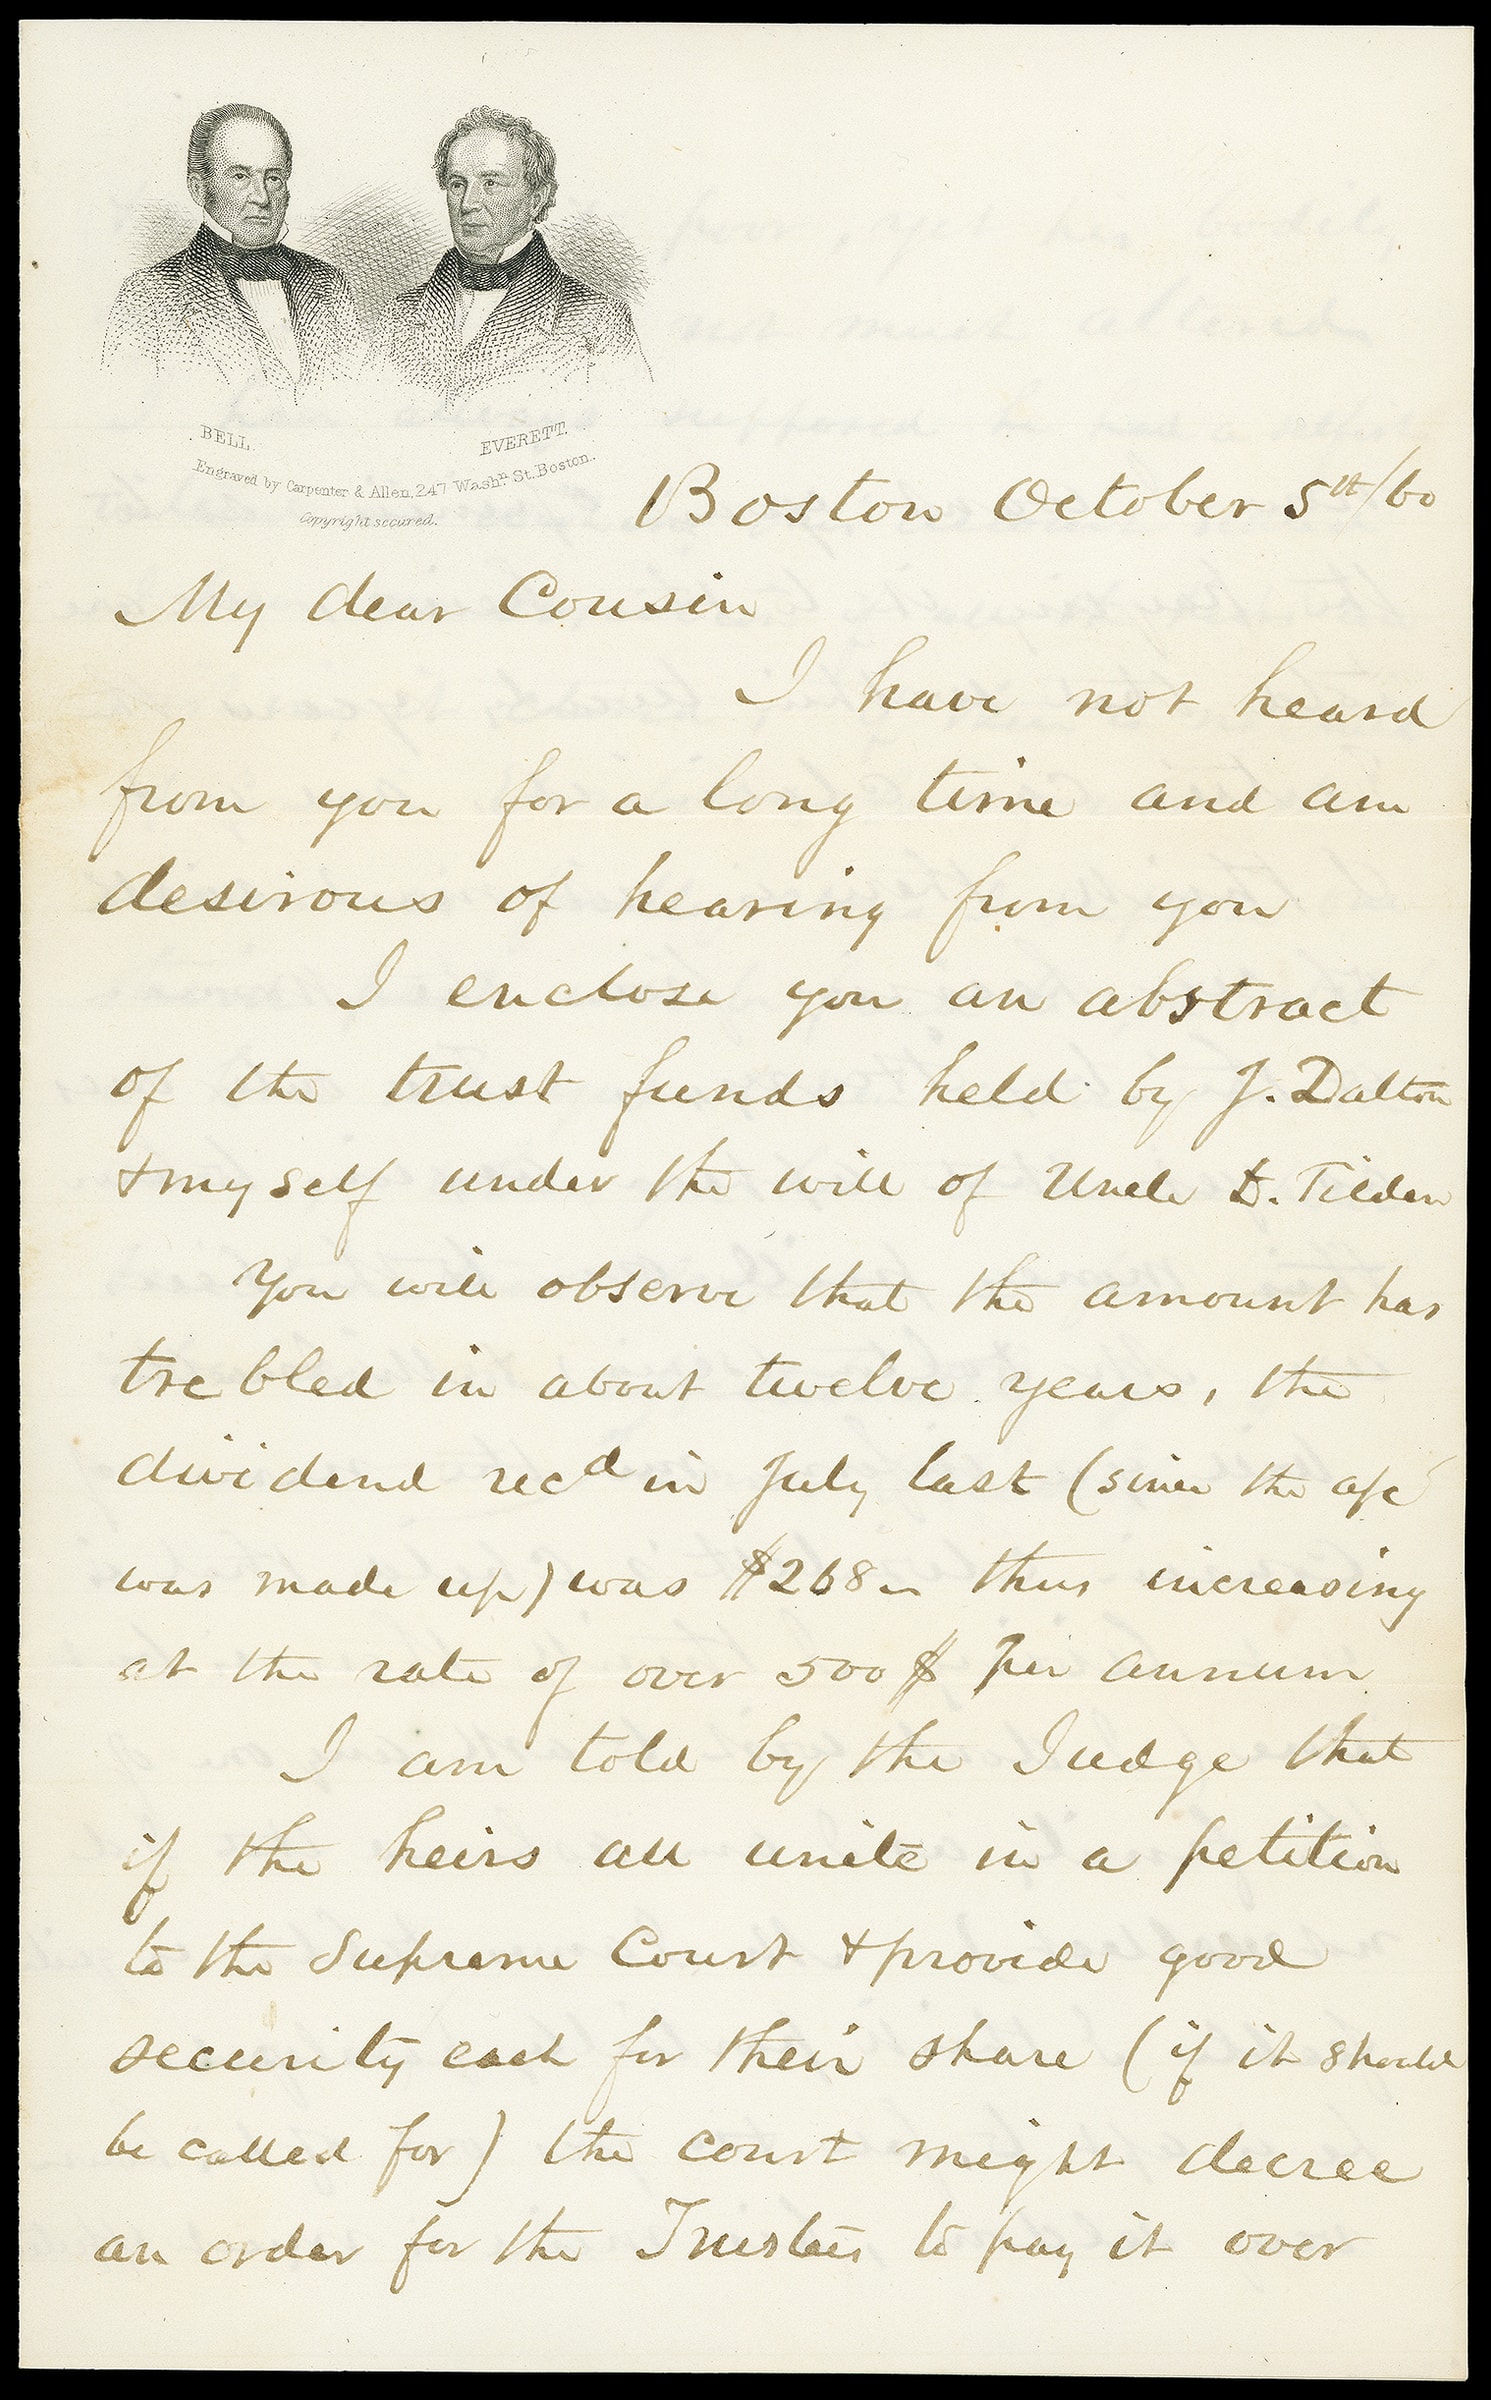 BELL.
EVERETT.
Engraved by Carpenter & Allen, 247 Washn. St. Boston.
Copyright secured.
Boston October 5th/60
My dear Cousin
I have not heard
from you for a long time and am
desirous of hearing from you
I enclose you an abstract
of the trust funds held by J. Dalton
& myself under the will of Uncle D. Tilden
You will observe that the amount has
trebled in about twelve years, the
dividend recd in July last (since the a/c
was made up) was $268 thus increasing
at the rate of over 500$ per annum
I am told by the Judge that
if the heirs all unite in a petition
to the Supreme Court & provide good
security each for their share (if it should
be called for) the court might decree
an order for the Trustees to pay it over